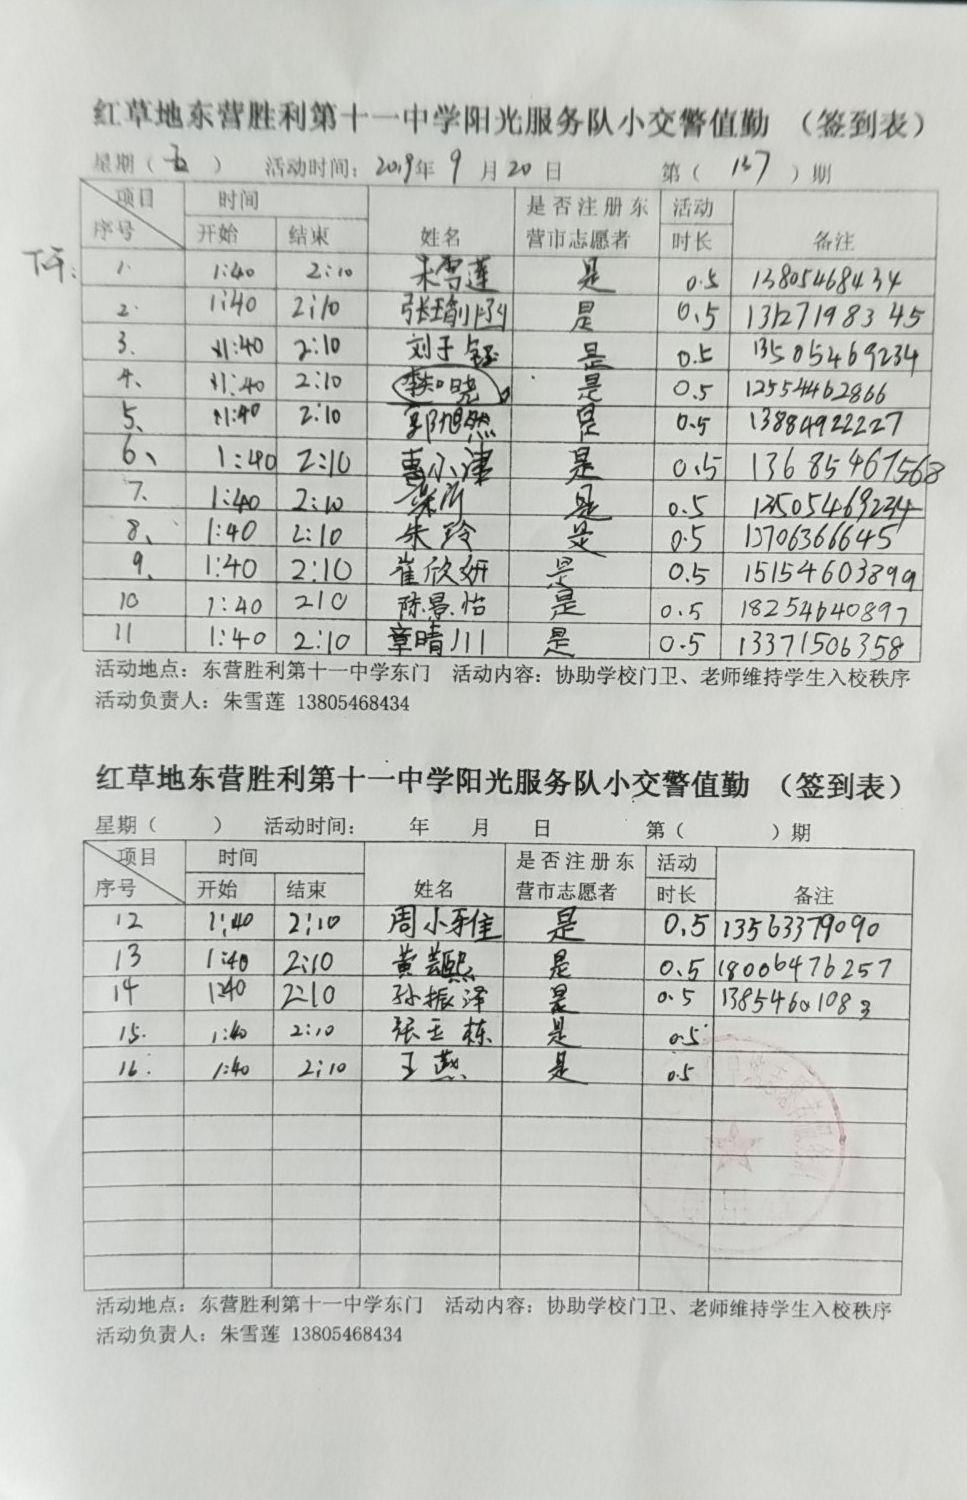 红草地东营胜利第十一中学阳光服务队小交警值勤 （签到表）
星期（ 五 ） 活动时间：2019年 9 月 20 日 第（ 137 ）期
项目 时间 是否注册东 活动
序号 开始 结束 姓名 营市志愿者 时长 备注
下午：
1. 1:40 2:10 朱雪莲 是 0.5 13805468434
2. 1:40 2:10 是 0.5 13127198345
3. 1:40 2:10 刘子钰 是 0.5 13505469234
4、 1:40 2:10 是 0.5 12554462866
5、 1:40 2:10 郭旭然 是 0.5 13884922227
6、 1:40 2:10 曹小津 是 0.5 13685467568
7. 1:40 2:10 是 0.5 13505469234
8、 1:40 2:10 朱玲 是 0.5 13706366645
9、 1:40 2:10 崔欣妍 是 0.5 15154603899
10 1:40 210 陈景怡 是 0.5 18254640897
11 1:40 2:10 章晴川 是 0.5 13371506358
活动地点：东营胜利第十一中学东门 活动内容：协助学校门卫、老师维持学生入校秩序
活动负责人：朱雪莲 13805468434
红草地东营胜利第十一中学阳光服务队小交警值勤 （签到表）
星期（ ） 活动时间： 年 月 日 第（ ）期
项目 时间 是否注册东 活动
序号 开始 结束 姓名 营市志愿者 时长 备注
12 1:40 2:10 周小钰佳 是 0.5 13563379090
13 1:40 2:10 是 0.5 18006476257
14 1:40 2:10 孙振泽 是 0.5 13854601083
15. 1:40 2:10 张玉栋 是 0.5
16. 1:40 2:10 王燕 是 0.5
活动地点：东营胜利第十一中学东门 活动内容：协助学校门卫、老师维持学生入校秩序
活动负责人：朱雪莲 13805468434